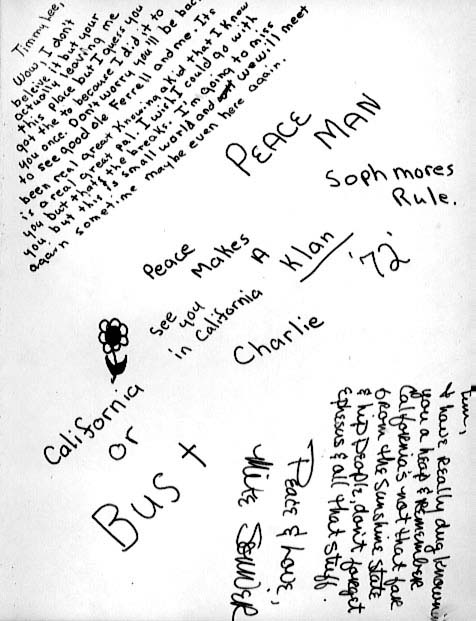 Timmy Lee,
Wow, I don't
beleive it but your
actually leaving me
this place but I guess you
got the to because I did it to
you once. Don't worry you'll be back
to see good ole Ferrell and me. Its
been real great knowing a kid that I know
is a real great pal. I wish I could go with
you but thats the breaks. I'm going to miss
you, but this is small world and wewill meet
again sometime maybe even here again.
PEACE
MAN
Sophmores
Rule.
Peace
Makes
A
Klan
'72'
see
you
in California
Charlie
California
or
Bust
Tim,
I have really dug knowin
you a heap & remember
California's not that far
from the sunshine state
& hip people, don't forget
Ephesus & all that stuff.
Peace & Love,
Mike